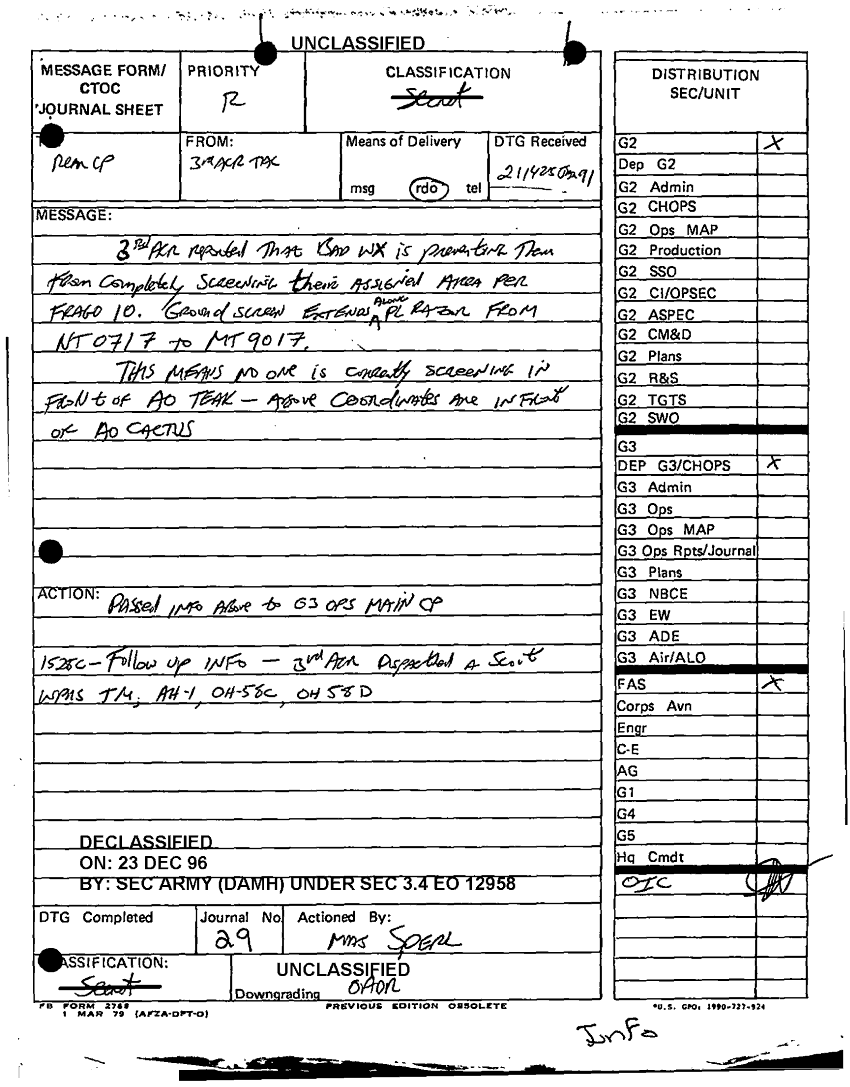 UNCLASSIFIED
MESSAGE FORM/
CTOC
JOURNAL SHEET
PRIORITY
R
CLASSIFICATION
Secret
Rear CP
FROM:
3rd ACR TAC
Means of Delivery
msg rdo tel
DTG Received
211425
MESSAGE:
3rd ACR reported THAT BAD WX is preventing Them
from Completely SCREENING their ASSIGNED AREA PER
FRAGO 10. Ground screen EXTENDS ALONG PL RAZOR FROM
NT 0717 to MT 9017.
THIS MEANS NO ONE is currently SCREENING IN
FRONT OF AO TEAK – Above Coordinates Are IN Front
OF AO CACTUS
ACTION: PASSED INFO Above to G3 OPS MAIN CP
1525C – Follow up INFO – 3rd ACR Dispatched A Scout
WPNS TM, AH-1, OH-58C, OH 58D
DECLASSIFIED
ON: 23 DEC 96
BY: SEC ARMY (DAMH) UNDER SEC 3.4 EO 12958
DTG Completed
Journal No.
29
Actioned By:
SPERL
ASSIFICATION:
Secret
UNCLASSIFIED
Downgrading OADR
FB FORM 2768
1 MAR 79 (AFZA-DPT-O)
PREVIOUS EDITION OBSOLETE
DISTRIBUTION
SEC/UNIT
G2 X
Dep G2
G2 Admin
G2 CHOPS
G2 Ops MAP
G2 Production
G2 SSO
G2 CI/OPSEC
G2 ASPEC
G2 CM&D
G2 Plans
G2 R&S
G2 TGTS
G2 SWO
G3
DEP G3/CHOPS X
G3 Admin
G3 Ops
G3 Ops MAP
G3 Ops Rpts/Journal
G3 Plans
G3 NBCE
G3 EW
G3 ADE
G3 Air/ALO
FAS X
Corps Avn
Engr
C-E
AG
G1
G4
G5
Hq Cmdt
OIC
*U.S. GPO: 1990-727-924
Info